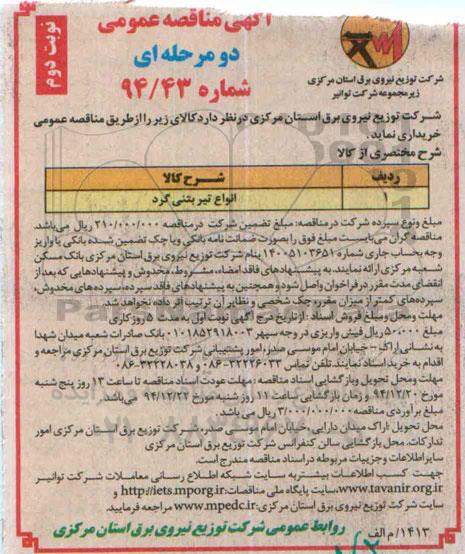 آگهی مناقصه عمومی
نوبت دوم
دو مرحله ای
شماره ۹۴/۴۳
شرکت توزیع نیروی برق استان مرکزی
زیر مجموعه شرکت توانیر
شرکت توزیع نیروی برق استان مرکزی در نظر دارد کالای زیر را از طریق مناقصه عمومی
خریداری نماید.
شرح مختصری از کالا
ردیف شرح کالا
۱ انواع تیر بتنی گرد
مبلغ و نوع سپرده شرکت در مناقصه: مبلغ تضمین شرکت در مناقصه ۳۱۰/۰۰۰/۰۰۰ ریال می‌باشد.
مناقصه گران می‌بایست مبلغ فوق را بصورت ضمانت نامه بانکی و یا چک تضمین شده بانکی یا واریز
وجه بحساب جاری شماره ۱۴۰۰۵۱۰۳۶۵۱ بنام شرکت توزیع نیروی برق استان مرکزی بانک مسکن
شعبه مرکزی ارائه نمایند. به پیشنهادهای فاقد امضاء، مشروط، مخدوش و پیشنهادهایی که بعد از
انقضای مدت مقرر در فراخوان واصل شود و همچنین به پیشنهادهای فاقد سپرده، سپرده های مخدوش،
سپرده‌های کمتر از میزان مقرر، چک شخصی و نظایر آن ترتیب اثر داده نخواهد شد.
مهلت و محل و مبلغ فروش اسناد : از تاریخ درج آگهی نوبت اول به مدت ۵ روز کاری
مبلغ ۵۰،۰۰۰ ریال فیش واریزی در وجه سپهر ۰۱۰۱۸۵۲۹۱۸۰۰۳ بانک صادرات شعبه میدان شهدا
به نشانی اراک - خیابان امام موسی صدر، امور پشتیبانی شرکت توزیع برق استان مرکزی مراجعه و
اقدام به خرید اسناد نمایند. تلفن تماس ۳۲۲۲۶۰۳۳-۰۸۶ و ۳۲۲۲۸۰۳۸-۰۸۶
مهلت و محل تحویل و بازگشایی اسناد مناقصه : مهلت عودت اسناد مناقصه تا ساعت ۱۳ روز پنج شنبه
مورخ ۹۴/۱۲/۲۰ و زمان بازگشایی ساعت ۱۱ روز شنبه مورخ ۹۴/۱۲/۲۲ می‌باشد.
مبلغ برآوردی مناقصه ۳/۰۰۰/۰۰۰/۰۰۰ ریال می‌باشد.
محل تحویل : اراک میدان دارایی، خیابان امام موسی صدر، شرکت توزیع برق استان مرکزی امور
تدارکات، محل بازگشایی سالن کنفرانس شرکت توزیع برق استان مرکزی
سایر اطلاعات و جزییات مربوطه در اسناد مناقصه مندرج است.
جهت کسب اطلاعات بیشتر به سایت شبکه اطلاع رسانی معاملات شرکت توانیر
www.tavanir.org.ir، سایت پایگاه ملی مناقصات: http://iets.mporg.ir و
سایت شرکت توزیع نیروی برق استان مرکزی: www.mpedc.ir مراجعه فرمایید.
روابط عمومی شرکت توزیع نیروی برق استان مرکزی
۱۴۱۳/ م الف